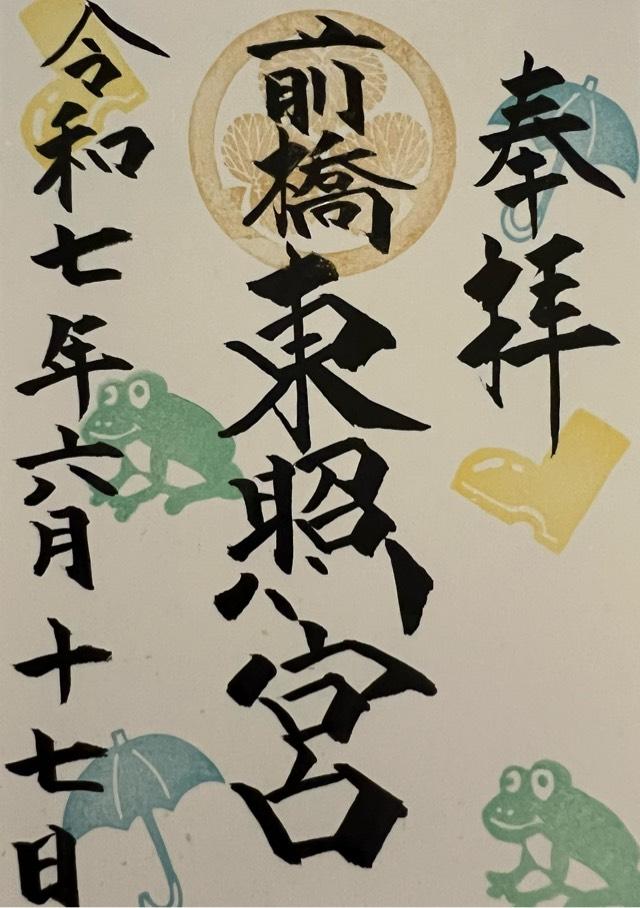 奉拝
前橋東照宮
令和七年六月十七日